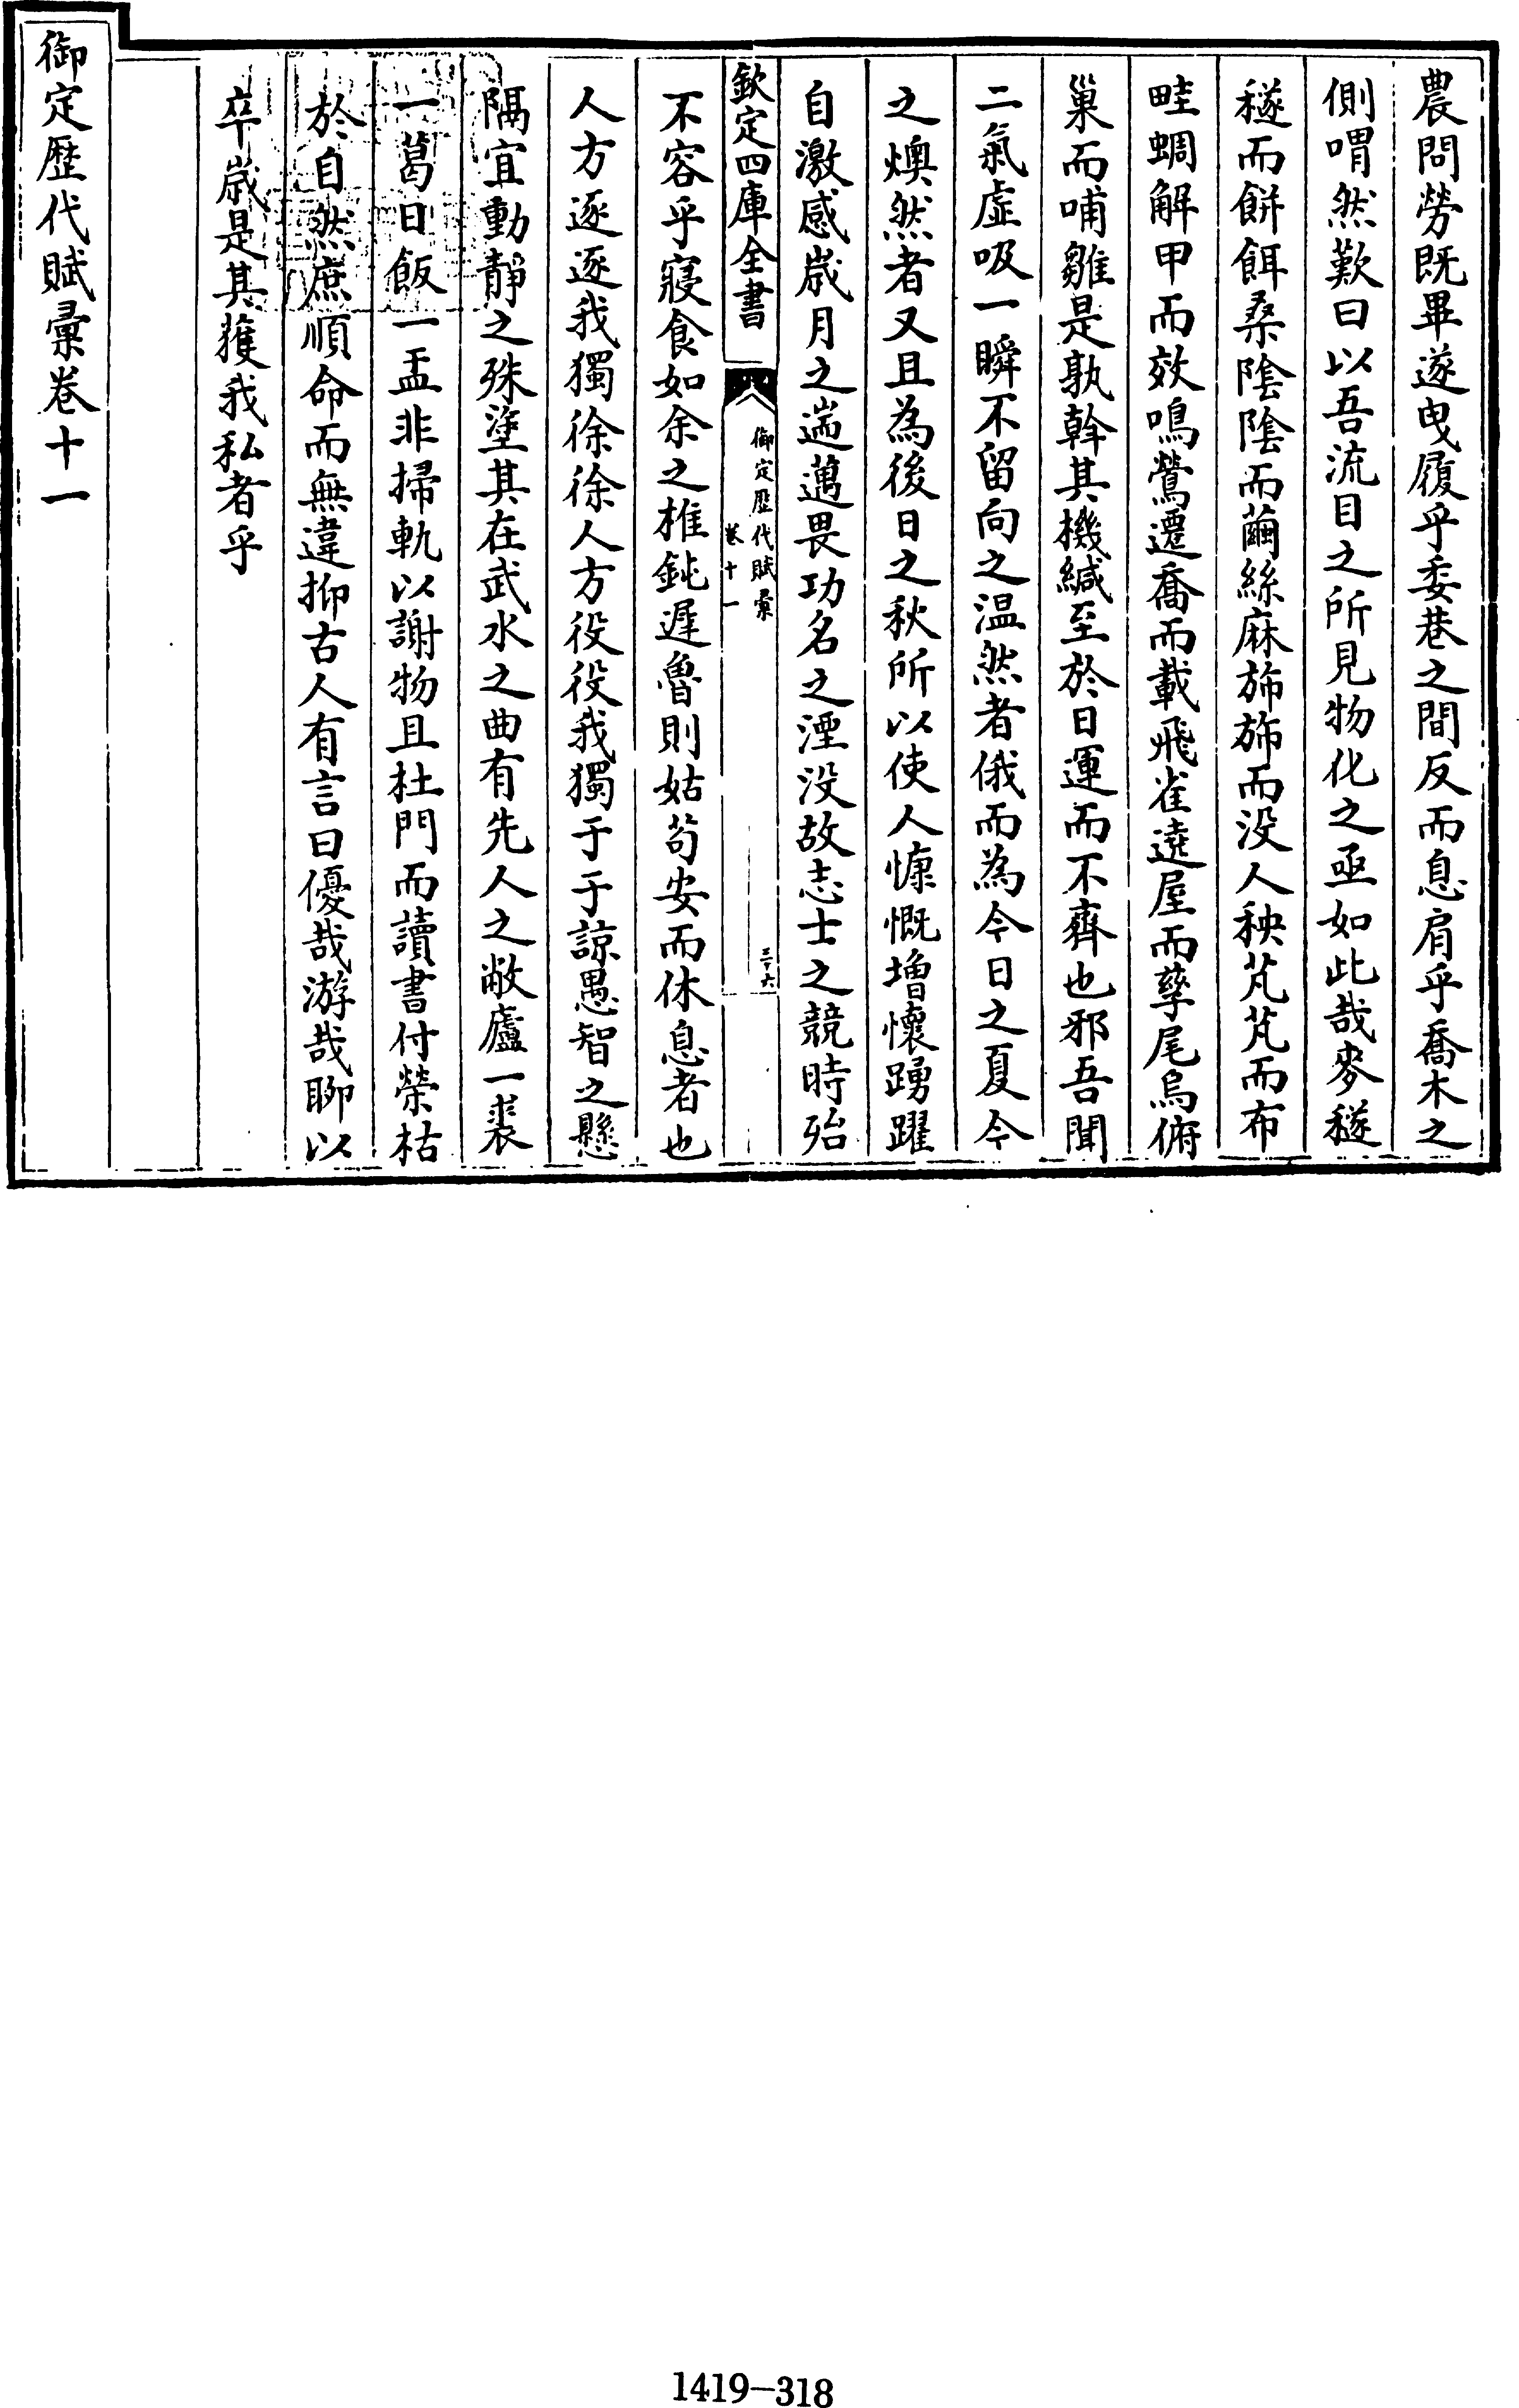 農問勞既畢遂曵履乎委巷之間反而息肩乎喬木之
側喟然歎曰以吾流目之所見物化之亟如此哉麥穟
穟而餅餌桑隂隂而繭絲麻斾斾而没人秧芃芃而布
畦蜩解甲而效鳴鶯遷喬而載飛雀遶屋而孳尾烏俯
巢而哺雛是孰斡其機緘至於日運而不齊也邪吾聞
二氣虚吸一瞬不留向之温然者俄而為今日之夏今
之燠然者又且為後日之秋所以使人慷慨増懷踴躍
自激感歲月之遄邁畏功名之湮没故志士之競時殆
欽定四庫全書
御定歴代賦彙
卷十一
三十六
不容乎寢食如余之椎鈍遲魯則姑苟安而休息者也
人方逐逐我獨徐徐人方役役我獨于于諒愚智之懸
隔宜動靜之殊塗其在武水之曲有先人之敝廬一裘
一葛日飯一盂非掃軌以謝物且杜門而讀書付榮枯
於自然庶順命而無違抑古人有言曰優哉游哉聊以
卒歲是其獲我私者乎
御定歴代賦彙卷十一
1419-318